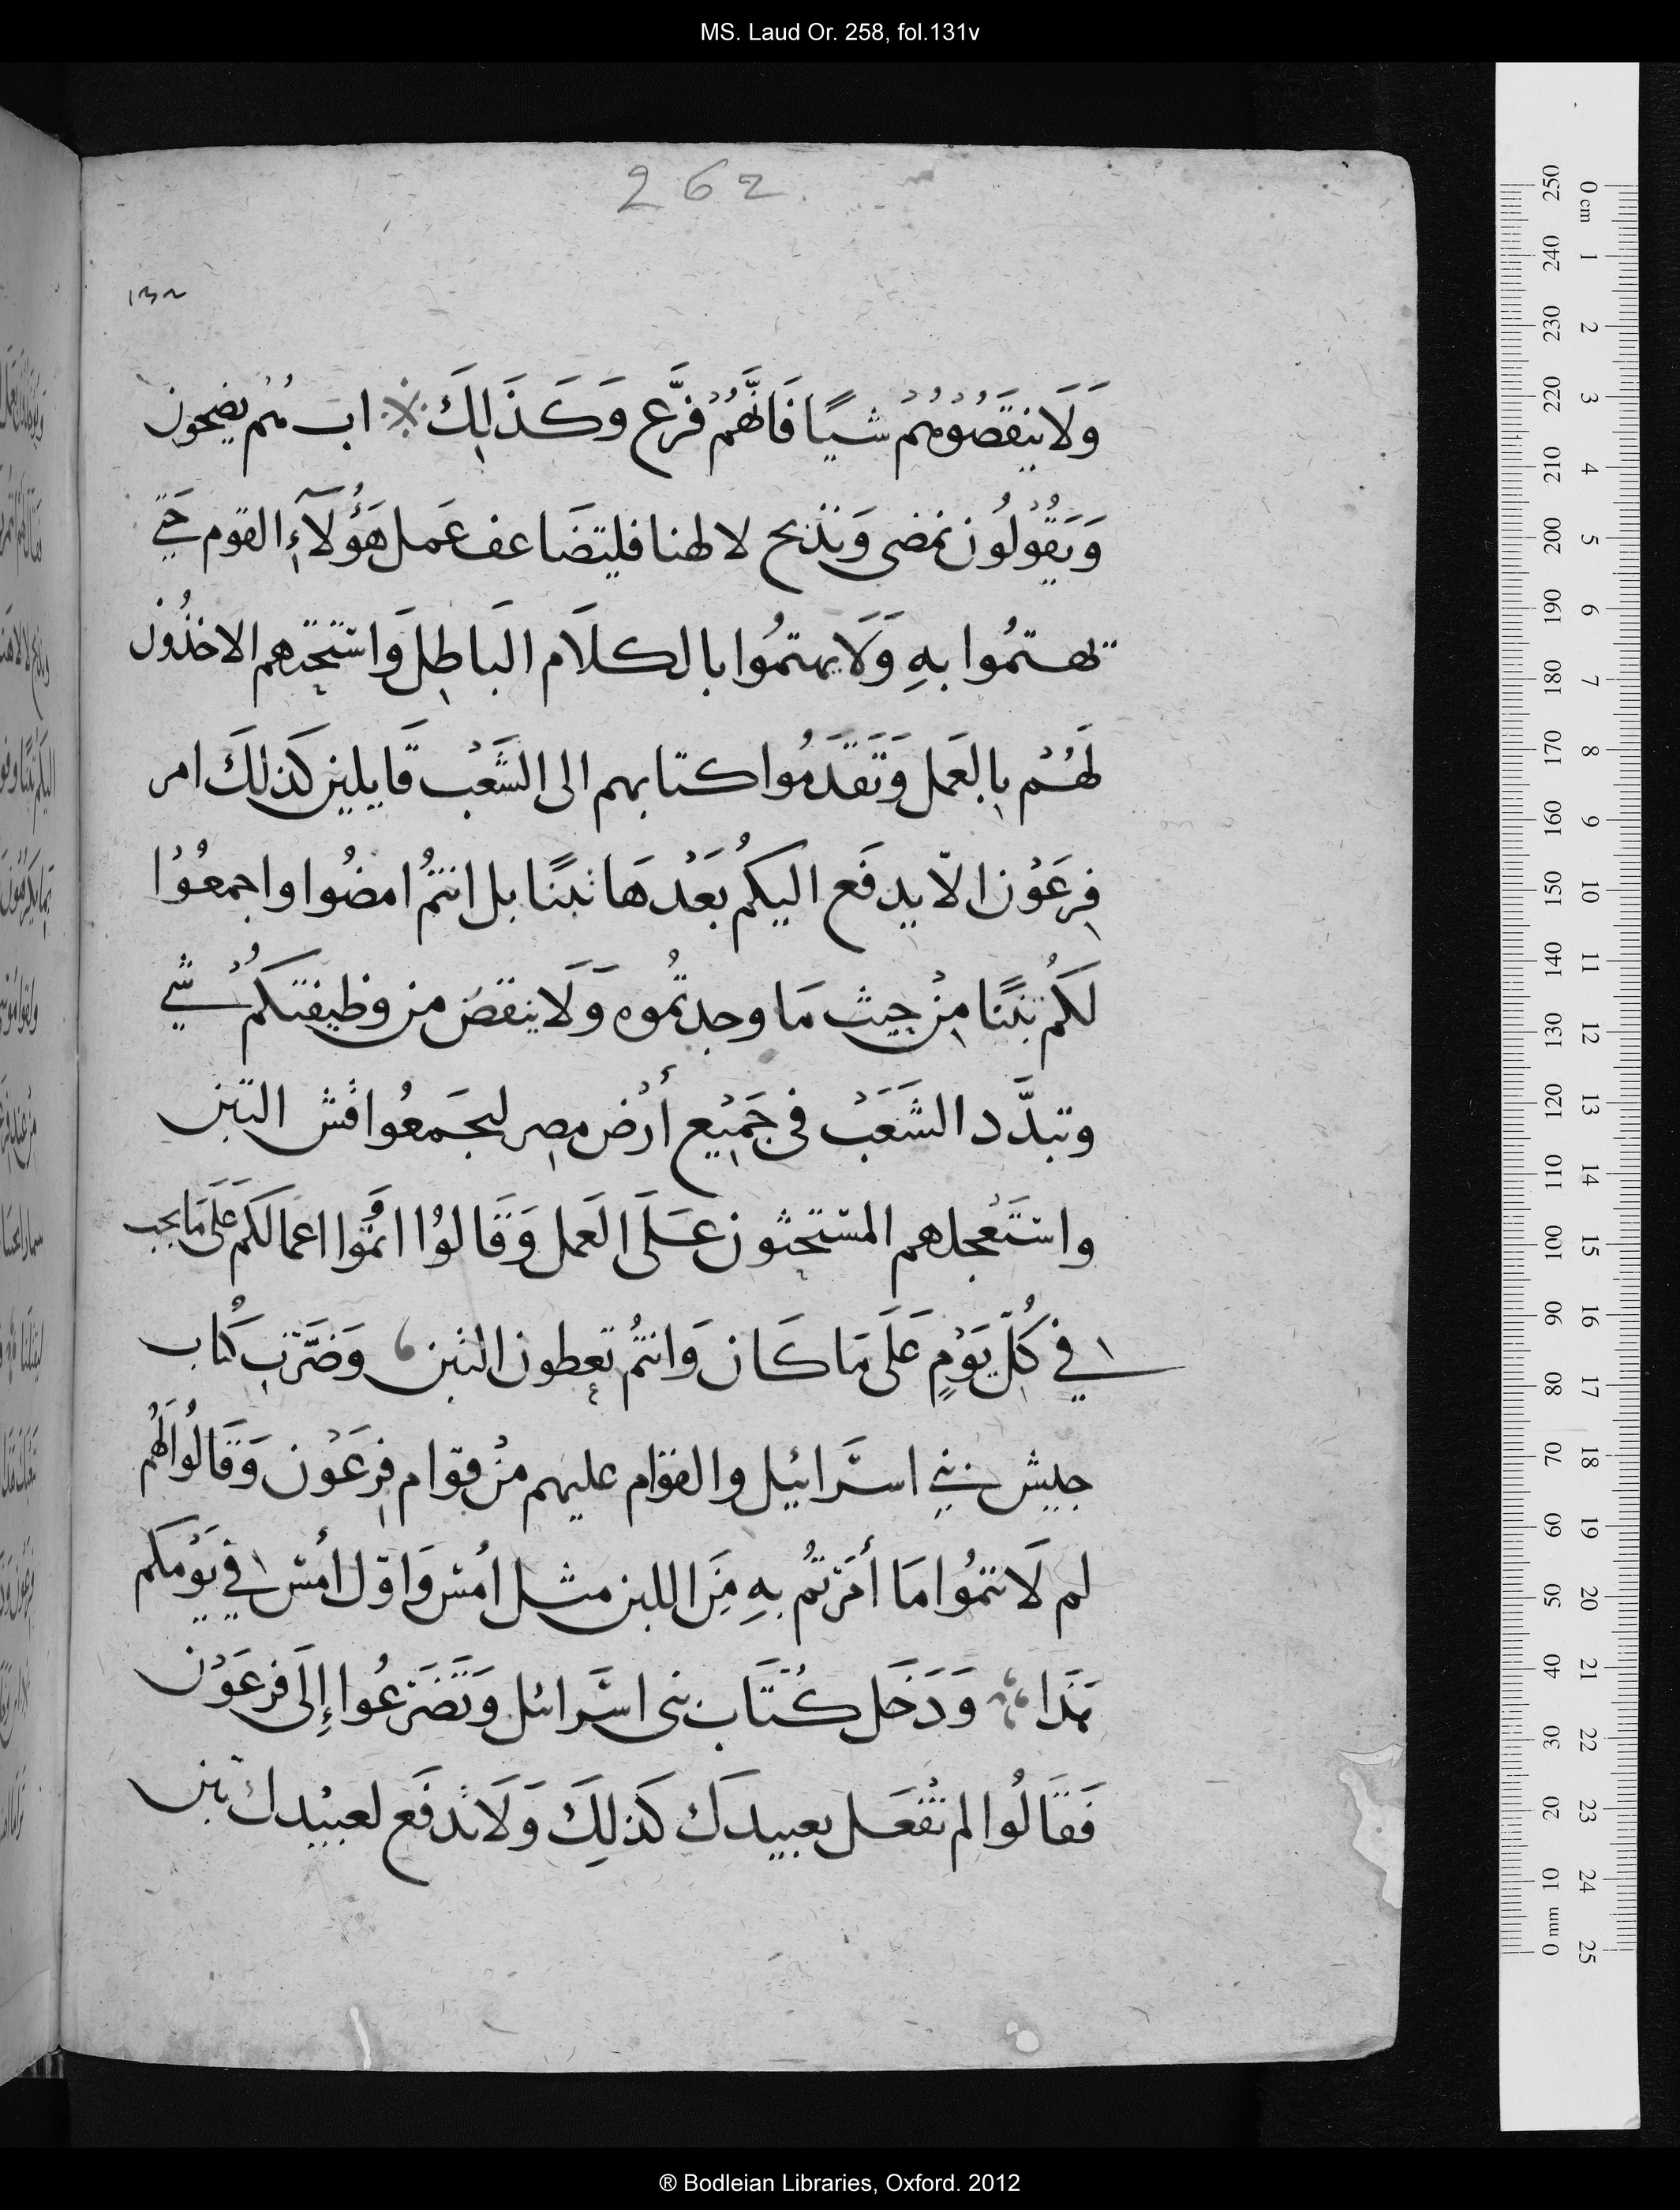 MS. Laud Or. 258, fol.131v
262
١٣٢
وَلَا ينقَصُوْهُمْ شيًا فَانَّهُمْ فرَّع وَكَذَالِكَ ابـ هُم يضجون
وَيَقُوْلُوُن نمضى وَنذبح لالهنا فليتضَاعف عَمل هَؤُلآءِ القوم حَتي
تهتمُوا بهِ وَلَا يهتمُوا بالكلَام البَاطِل وَاستحثهم الاخذُون
لهُمْ بالعَمل وَتَقَدَمُوا كتابهم الى الشَّعْب قَايلين كذلكَ امر
فِرعَوْن الّا يدفَع اليكُم بَعْدهَا تبنًا بل انتمُ امضُوا واجمعُوْا
لكُم تبنًا مِنْ حيث مَا وجدتمُوه وَلَا ينقصَ من وظيفتكُمْ شي
وتبدَّد الشَعَبْ فى جَمِيْع أرْض مِصر ليجَمعُوا قش التبن
واستَعْجلهم المستحثون عَلَى العَمل وَقَالوُا اتمُّوا اعمالكم عَلَى مَا يجب
في كُلّ يَوْمٍ عَلَى مَا كَان وَانتمُ تعطون التبن وَضَرَب كُتاب
جليش بني اسرَائيل والقوَّام عليهم منْ قوّام فِرعَوْن وَقَالُوا لهُم
لم لَا تتموُا مَا أمَرْتمُ بهِ مِنَ اللبن مثل أمْس وَاوّل أمْس في يَوْمكم
هَذا وَدَخَل كُتَّاب بنى اسرَائل وَتَضَرَعُوا إِلَى فرعَوْن
فَقَالُوا لم تفْعَل بعبيدكَ كَذلِكَ وَلَا تدفَع لعبيْدك تبن
0 cm 1 2 3 4 5 6 7 8 9 10 11 12 13 14 15 16 17 18 19 20 21 22 23 24 25
250 240 230 220 210 200 190 180 170 160 150 140 130 120 110 100 90 80 70 60 50 40 30 20 10 0 mm
® Bodleian Libraries, Oxford. 2012